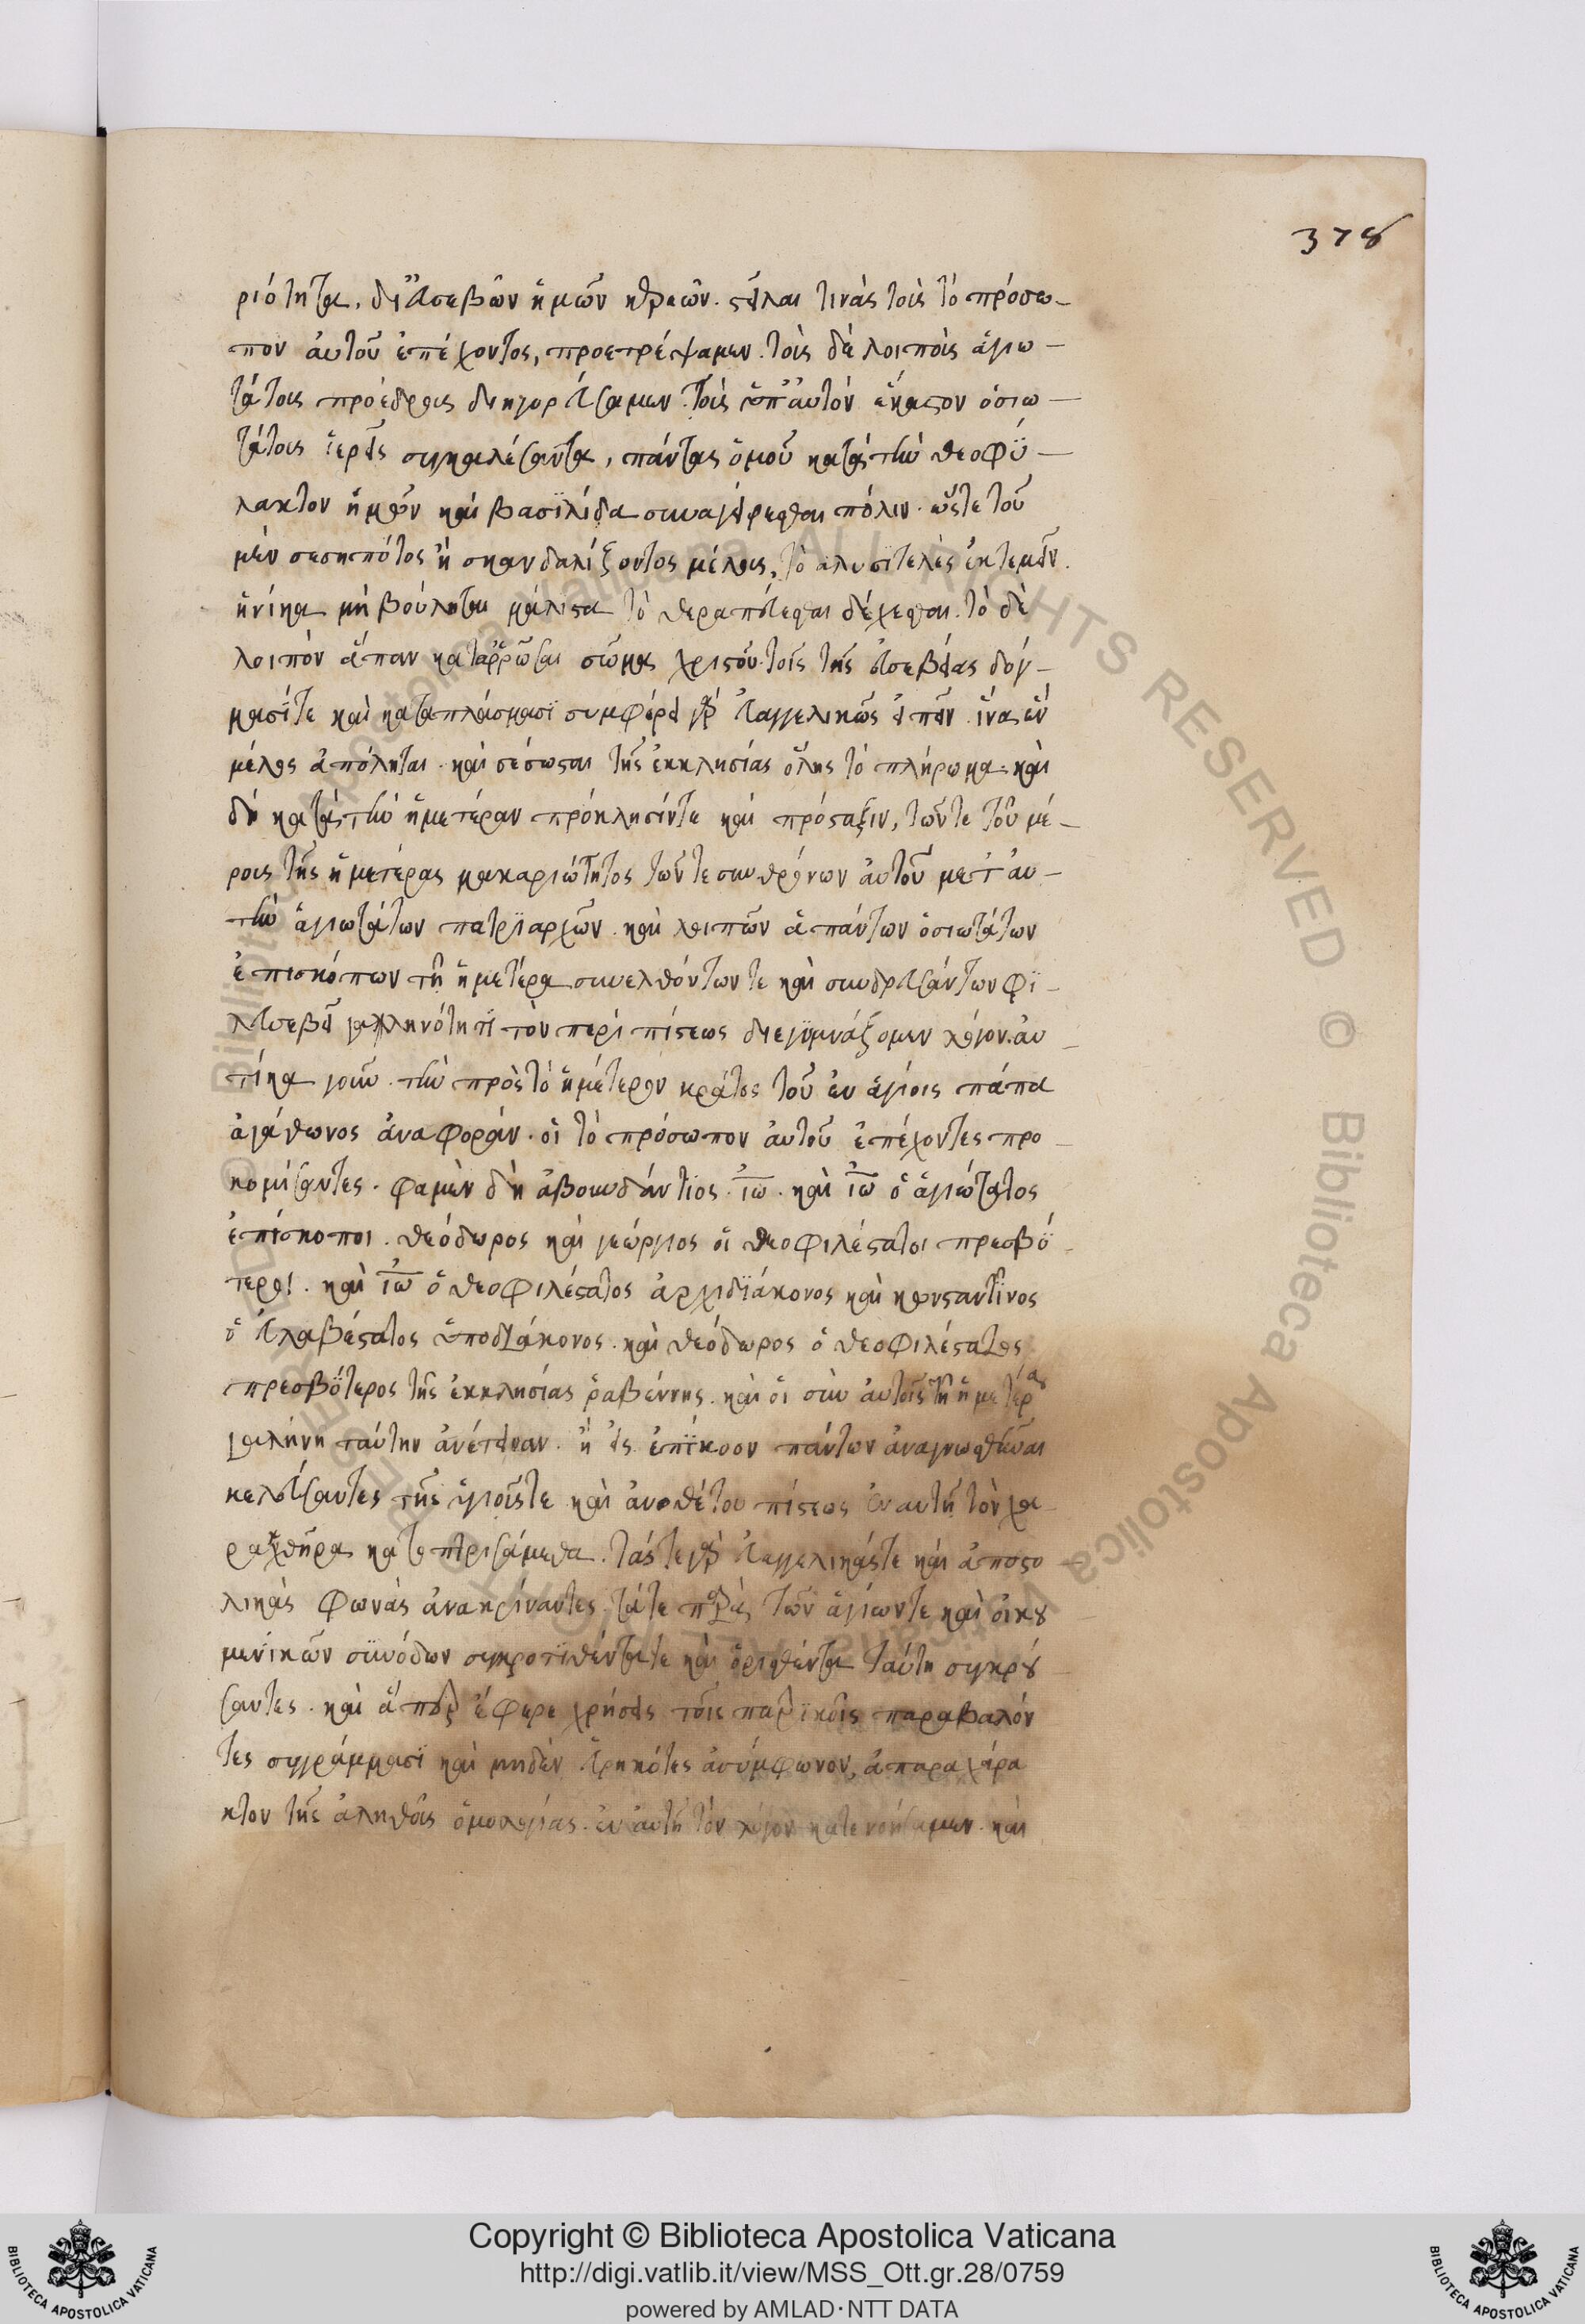 378
ριότητα. δι' εὐσεβῶν ἡμῶν κεραιῶν. στεῖλαι τινὰς τοὺς τὸ πρόσω-
πον αὐτοῦ ἐπέχοντας, προετρέψαμεν. τοῖς δὲ λοιποῖς ἁγιω-
τάτοις προέδροις διηγορεύσαμεν τοὺς ὑπ' αὐτὸν ἕκαστον ὁσιω-
τάτους ἱερεῖς συγκαλέσαντα, πάντας ὁμοῦ κατὰ τὴν θεοφύ-
λακτον ἡμῶν καὶ βασϊλίδα συναγείρεσθαι πόλιν. ὥστε τοῦ
μὲν σεσηπότος ἢ σκανδαλίζοντος μέλους, τὸ ἀλυσϊτελὲς ἐκτεμεῖν.
ἡνίκα μὴ βούλεται μάλιστα τὸ θεραπεύεσθαι δέχεσθαι. τὸ δὲ
λοιπὸν ἅπαν καταρρῶσαι σῶμα χριστοῦ τοῖς τῆς εὐσεβείας δόγ-
μασΐ τε καὶ καταπλάσμασϊ συμφέρει γὰρ εὐαγγελικῶς εἰπεῖν. ἵνα ἓν
μέλος ἀπόληται. καὶ σέσωσται τῆς ἐκκλησίας ὅλης τὸ πλήρωμα. καὶ
δὴ κατὰ τὴν ἡμετέραν πρόκλησίν τε καὶ πρόσταξιν, τῶν τε τοῦ μέ-
ρους τῆς ἡμετέρας μακαριότητος τῶν τε συνθρόνων αὐτοῦ μετ' αὐ-
τὴν ἁγιωτάτων πατρϊαρχῶν. καὶ λοιπῶν ἁπάντων ὁσιωτάτων
ἐπισκόπων τῇ ἡμετέρα συνελθόντων τε καὶ συνεδρευσάντων φϊ-
λευσεβεῖ γαληνότητϊ τὸν περὶ πίστεως διεγυμνάζομεν λόγον. αὐ-
τίκα γοῦν τὴν πρὸς τὸ ἡμέτερον κράτος τοῦ ἐν ἁγίοις πάπα
ἀγάθωνος ἀναφοράν. οἱ τὸ πρόσωπον αὐτοῦ ἐπέχοντες προ-
κομίσαντες. φαμὲν δὴ ἀβουνδάντϊος. ἰω. καὶ ἰω ὁ ἁγιώτατος
ἐπίσκοποι. θεόδωρος καὶ γεώργιος οἱ θεοφιλέστατοι πρεσβύ-
τεροι. καὶ ἰω ὁ θεοφιλέστατος ἀρχιδϊάκονος καὶ κωνσταντῖνος
ὁ εὐλαβέστατος ὑποδϊάκονος. καὶ θεόδωρος ὁ θεοφιλέστατος
πρεσβύτερος τῆς ἐκκλησίας ῥαβέννης. καὶ οἱ σὺν αὐτοῖς τῇ ἡμετέρα
γαλήνη ταύτην ἀνέτειναν. ἣ εἰς ἐπΐκοον πάντων ἀναγνωσθῆναι
κελεύσαντες τῆς ἁγίας τε καὶ ἀνοθέτου πίστεως ἐν αὐτῆ τὸν χα-
ρακτῆρα κατοπτρισάμεθα. ταῖς τε γὰρ εὐαγγελικαῖς τε καὶ ἀποστο-
λικὰς φωνὰς ἀνακρίναντες, τά τε παρὰ τῶν ἁγίων τε καὶ οἰκου
μενϊκῶν συνόδων συγκροτϊθέντα τε καὶ ὁρισθέντα ταύτη συγκρού
σαντες. καὶ ἅπερ ἔφερε χρήσεις τοῖς πατρϊκοῖς παραβαλόν
τες συγράμμασϊ καὶ μηδὲν εὑρηκότες ἀσύμφωνον, ἀπαραχάρα
κτον τῆς ἀληθοῦς ὁμολογίας. ἐν αὐτῆ τὸν λόγον κατενοήσαμεν. καὶ